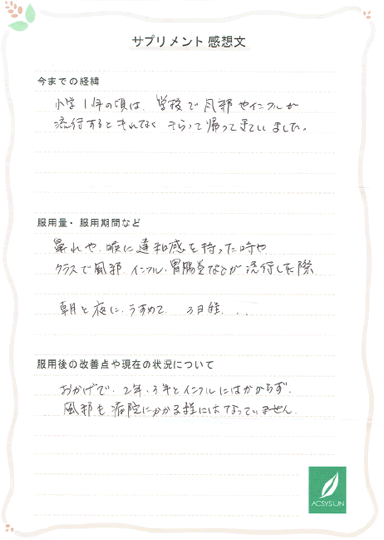 サプリメント 感想文
今までの経緯
小学1年の頃は、学校で風邪やインフルが
流行するともれなく もらって帰ってきていました。
服用量・服用期間など
暴れや、喉に違和感を持った時や
クラスで風邪、インフル、胃腸炎などが流行した際
朝と夜に、うすめて 3日程...
服用後の改善点や現在の状況について
おかげで、2年、3年とインフルにはかからず、
風邪も病院にかかる程にはなっていません。
ACSYSUN